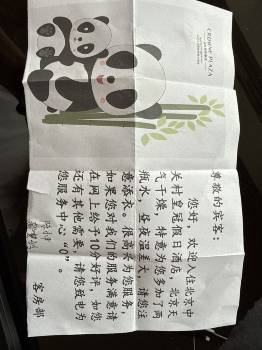 CROWNE PLAZA
尊敬的宾客：
您好，欢迎入住北京中
关村皇冠假日酒店，北京天
气干燥，特意为您多加了两
瓶水，昼夜温差大，请您注
意添衣。很高兴为您服务，
如果您对我们的服务满意请
在网上给予10分好评，如您
还有其他需要，请您致电为
您服务中心“0”。
客房部